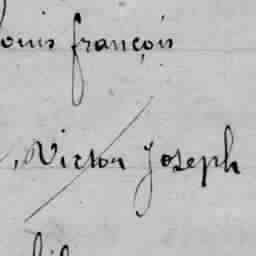 ouis françois
, Victor Joseph